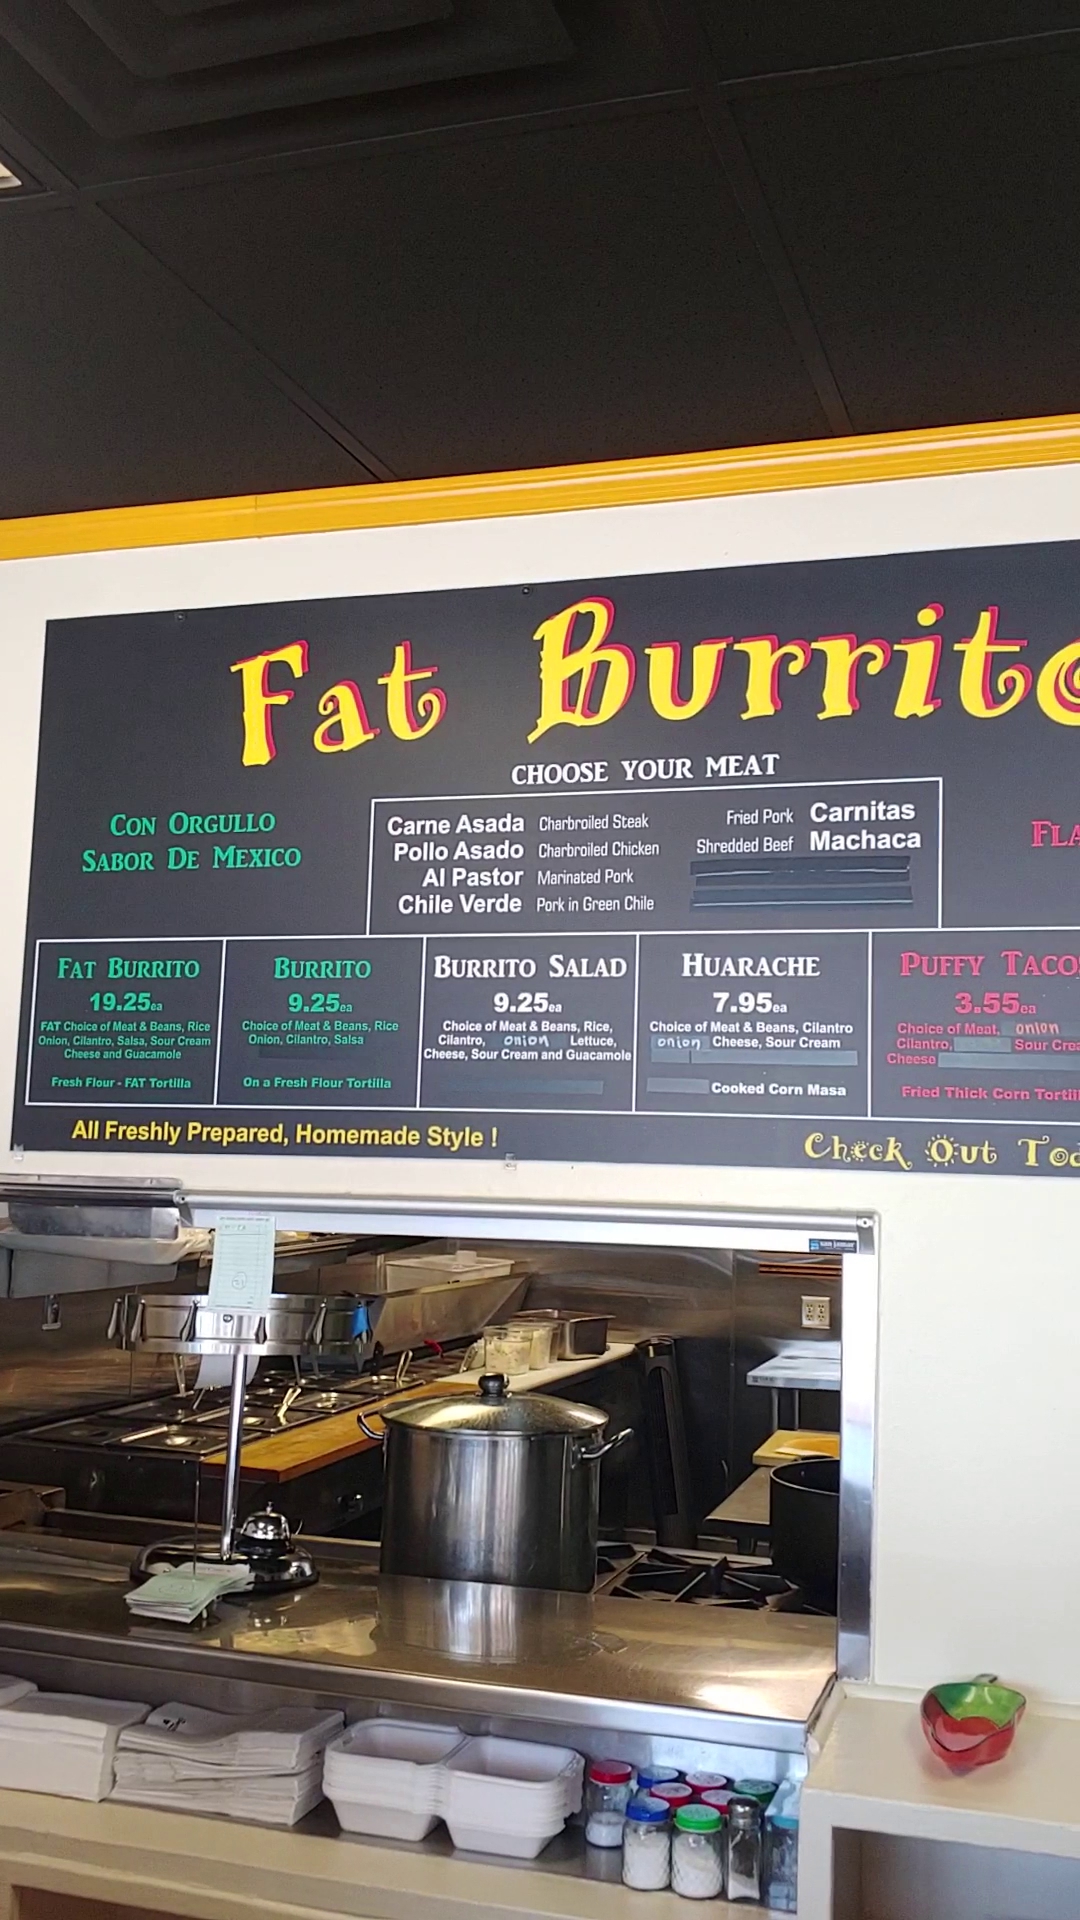 Fat Burrito
CHOOSE YOUR MEAT
CON ORGULLO
SABOR DE MEXICO
Carne Asada Charbroiled Steak
Pollo Asado Charbroiled Chicken
Al Pastor Marinated Pork
Chile Verde Pork in Green Chile
Fried Pork Carnitas
Shredded Beef Machaca
FLA
FAT BURRITO
19.25ea
FAT Choice of Meat & Beans, Rice
Onion, Cilantro, Salsa, Sour Cream
Cheese and Guacamole
Fresh Flour - FAT Tortilla
BURRITO
9.25ea
Choice of Meat & Beans, Rice
Onion, Cilantro, Salsa
On a Fresh Flour Tortilla
BURRITO SALAD
9.25ea
Choice of Meat & Beans, Rice,
Cilantro, onion Lettuce,
Cheese, Sour Cream and Guacamole
HUARACHE
7.95ea
Choice of Meat & Beans, Cilantro
onion Cheese, Sour Cream
Cooked Corn Masa
PUFFY TACOS
3.55ea
Choice of Meat, onion
Cilantro, Sour Crea
Cheese
Fried Thick Corn Tortill
All Freshly Prepared, Homemade Style !
Check Out Tod
san jamar